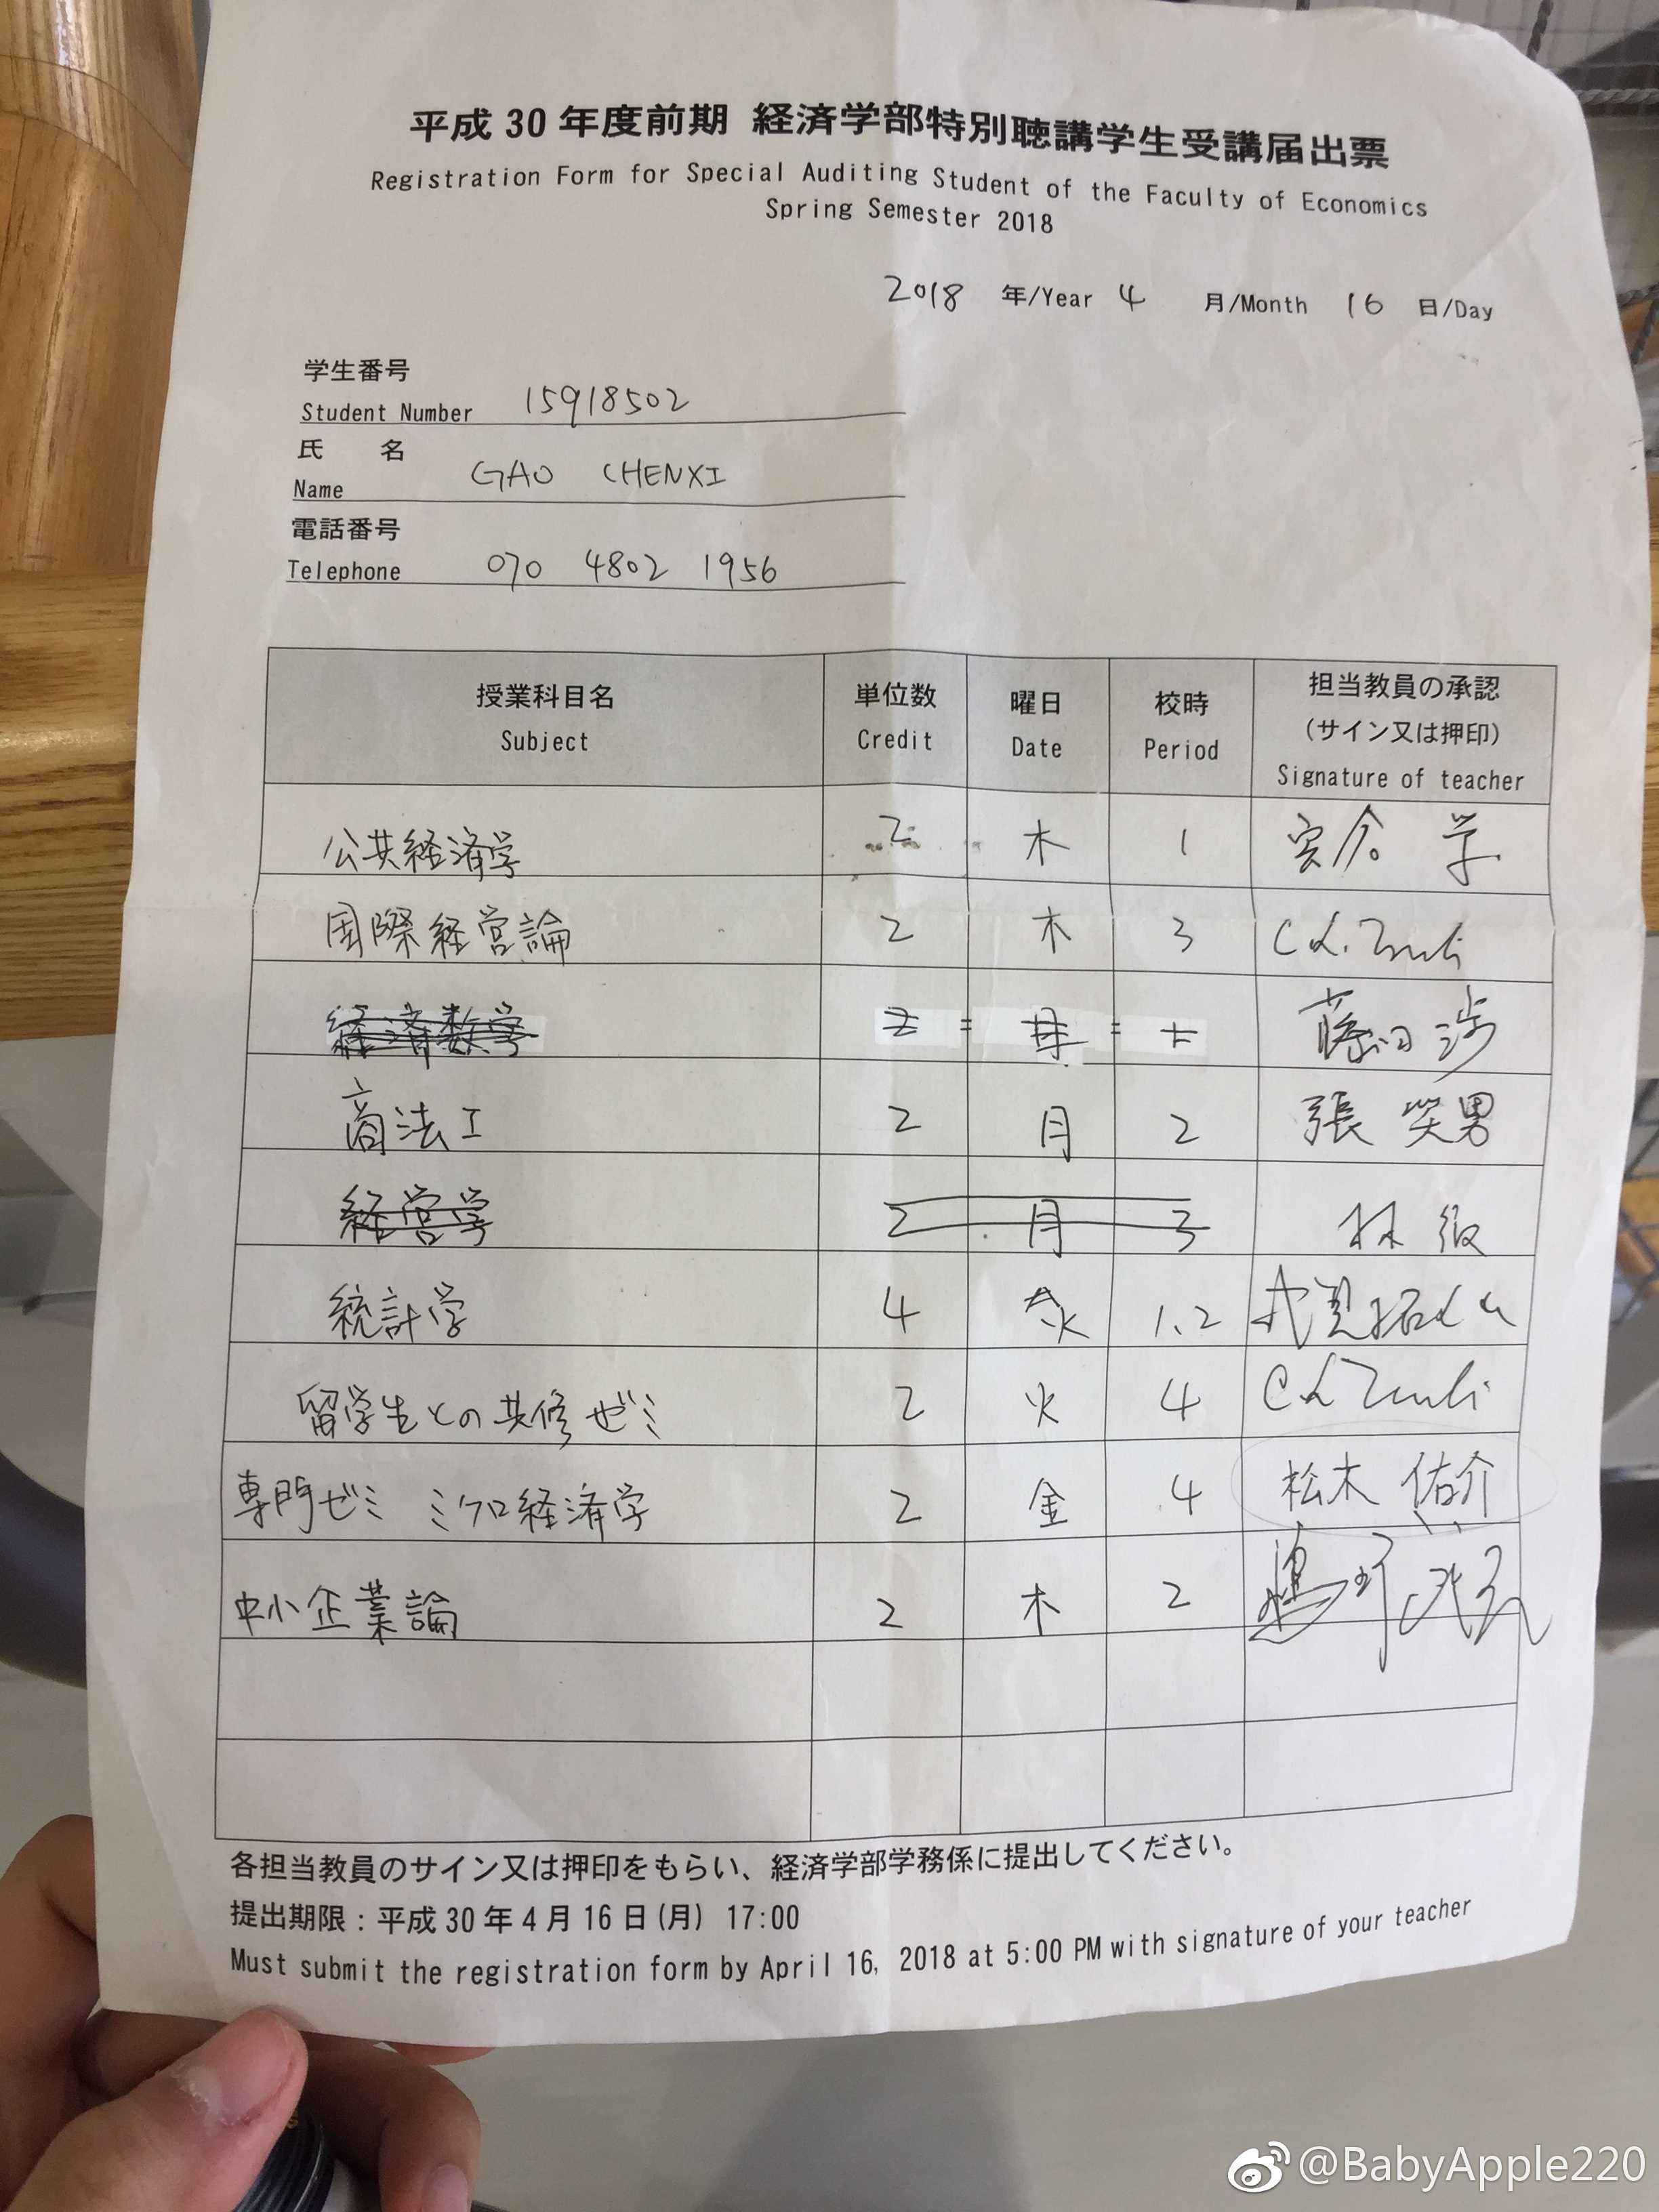 平成 30 年度前期 経済学部特別聴講学生受講届出票
Registration Form for Special Auditing Student of the Faculty of Economics
Spring Semester 2018
2018 年/Year 4 月/Month 16 日/Day
学生番号
Student Number 15918502
氏 名
Name GAO CHENXI
電話番号
Telephone 070 4802 1956
授業科目名 単位数 曜日 校時 担当教員の承認
(サイン又は押印)
Subject Credit Date Period Signature of teacher
公共経済学 2 木 1
国際経営論 2 木 3
経済数学 2 藤田 渉
商法I 2 月 2 張 笑男
経営学 2 月 3 林
統計学 4 火 1、2
留学生との共修ゼミ 2 火 4
専門ゼミ ミクロ経済学 2 金 4 松木 佑介
中小企業論 2 木 2
各担当教員のサイン又は押印をもらい、経済学部学務係に提出してください。
提出期限：平成 30 年 4 月 16 日(月) 17:00
Must submit the registration form by April 16, 2018 at 5:00 PM with signature of your teacher
@BabyApple220